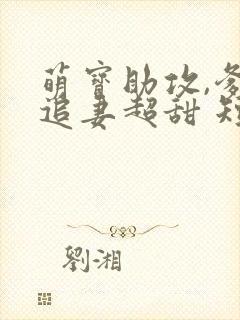 萌宝助攻,爹
追妻超甜 短
劉湘